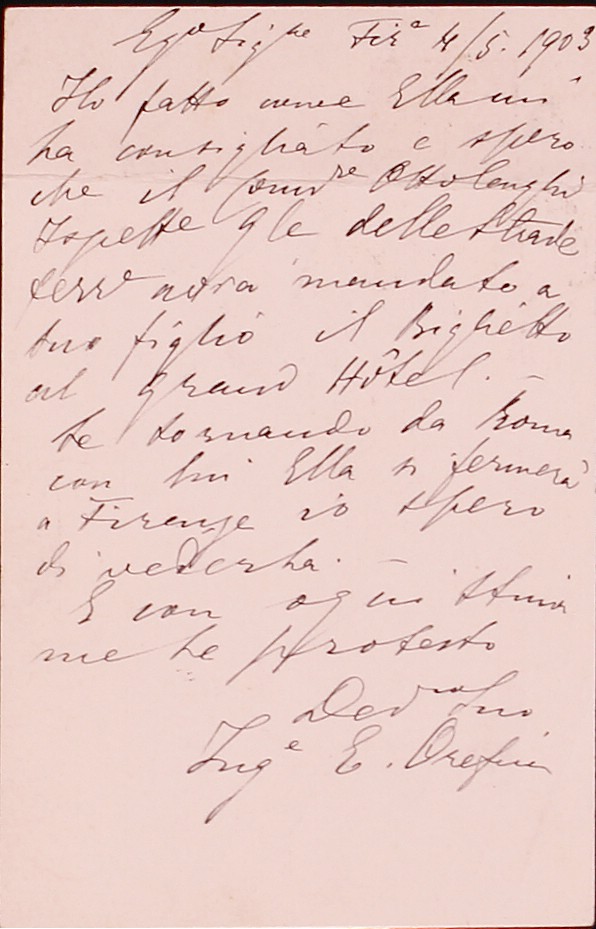 Egº Sigre Fira 4/5. 1903
Ho fatto come Ella mi
ha consigliato e spero
che il Comre Ottolenghi
Ispette Gle delle Strade
ferre avrà mandato a
suo figlio il Biglietto
al Grand Hôtel. –
Se tornando da Roma
con lui Ella si fermerà
a Firenze io spero
di vederla. –
E con ogni stima
me le protesto
Devmo Suo
Inge E. Orefici